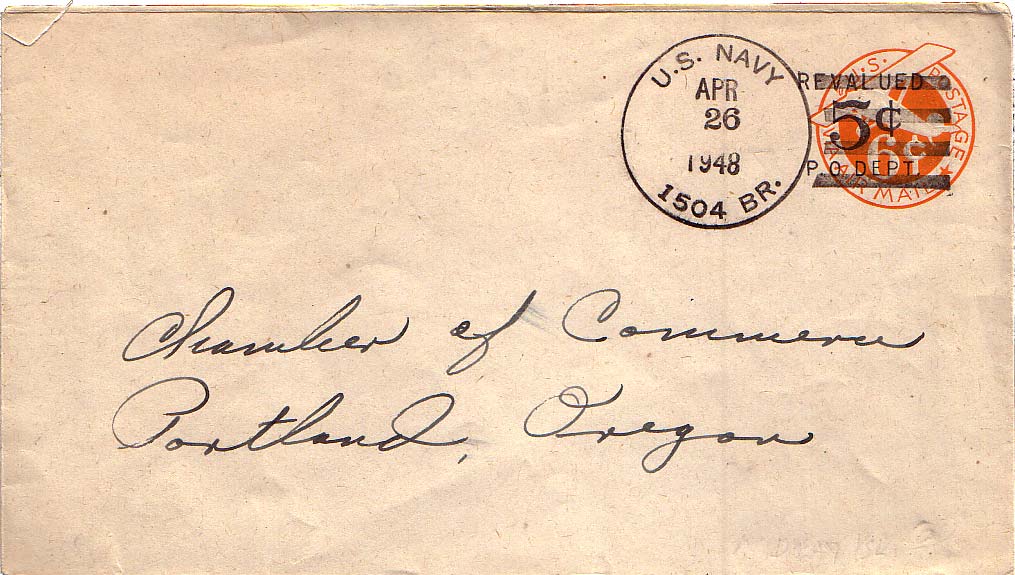 U.S. NAVY
APR
26
1948
1504 BR.
U.S. POSTAGE
REVALUED
5¢
6¢
P.O. DEPT.
AIR MAIL
Chamber of Commerce
Portland, Oregon